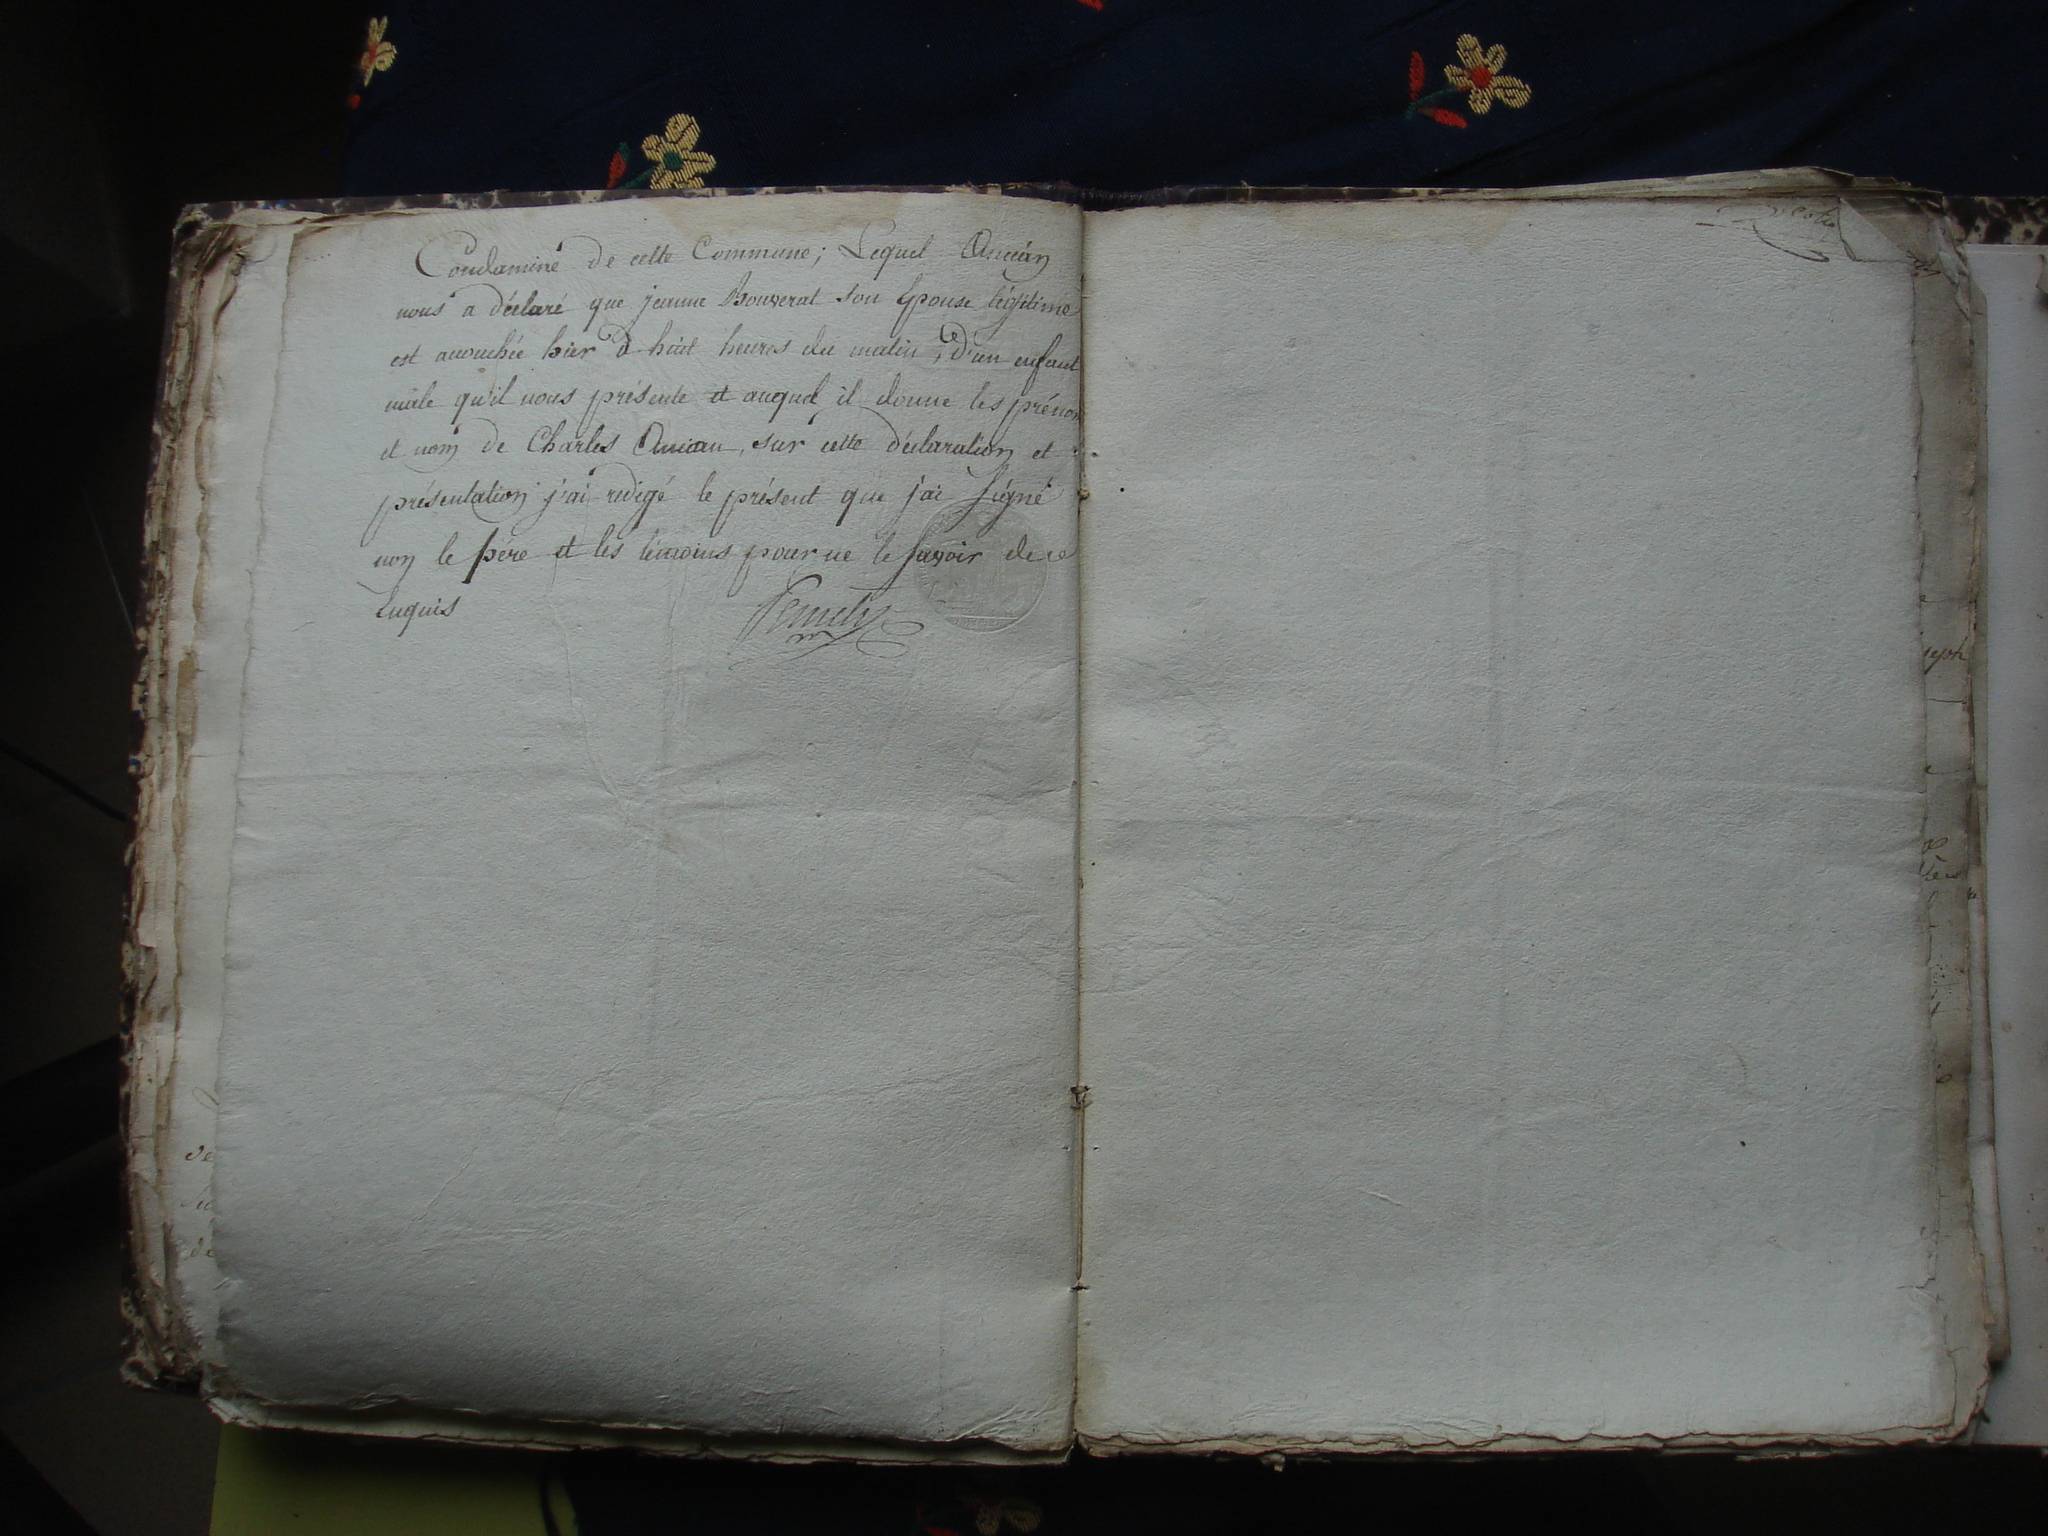 Condaminé de cette Commune; Lequel Ancian
nous a déclaré que jeanne Bouverat son Epouse légitime
est acouchée hier à huit heures du matin, d'un enfant
mâle qu'il nous présente et auquel il donne les prénom
et nom de Charles Ancian, sur cette déclaration et
présentation j'ai redigé le présent que j'ai signé
non le père et les témoins pour ne le savoir de ce
Enquis